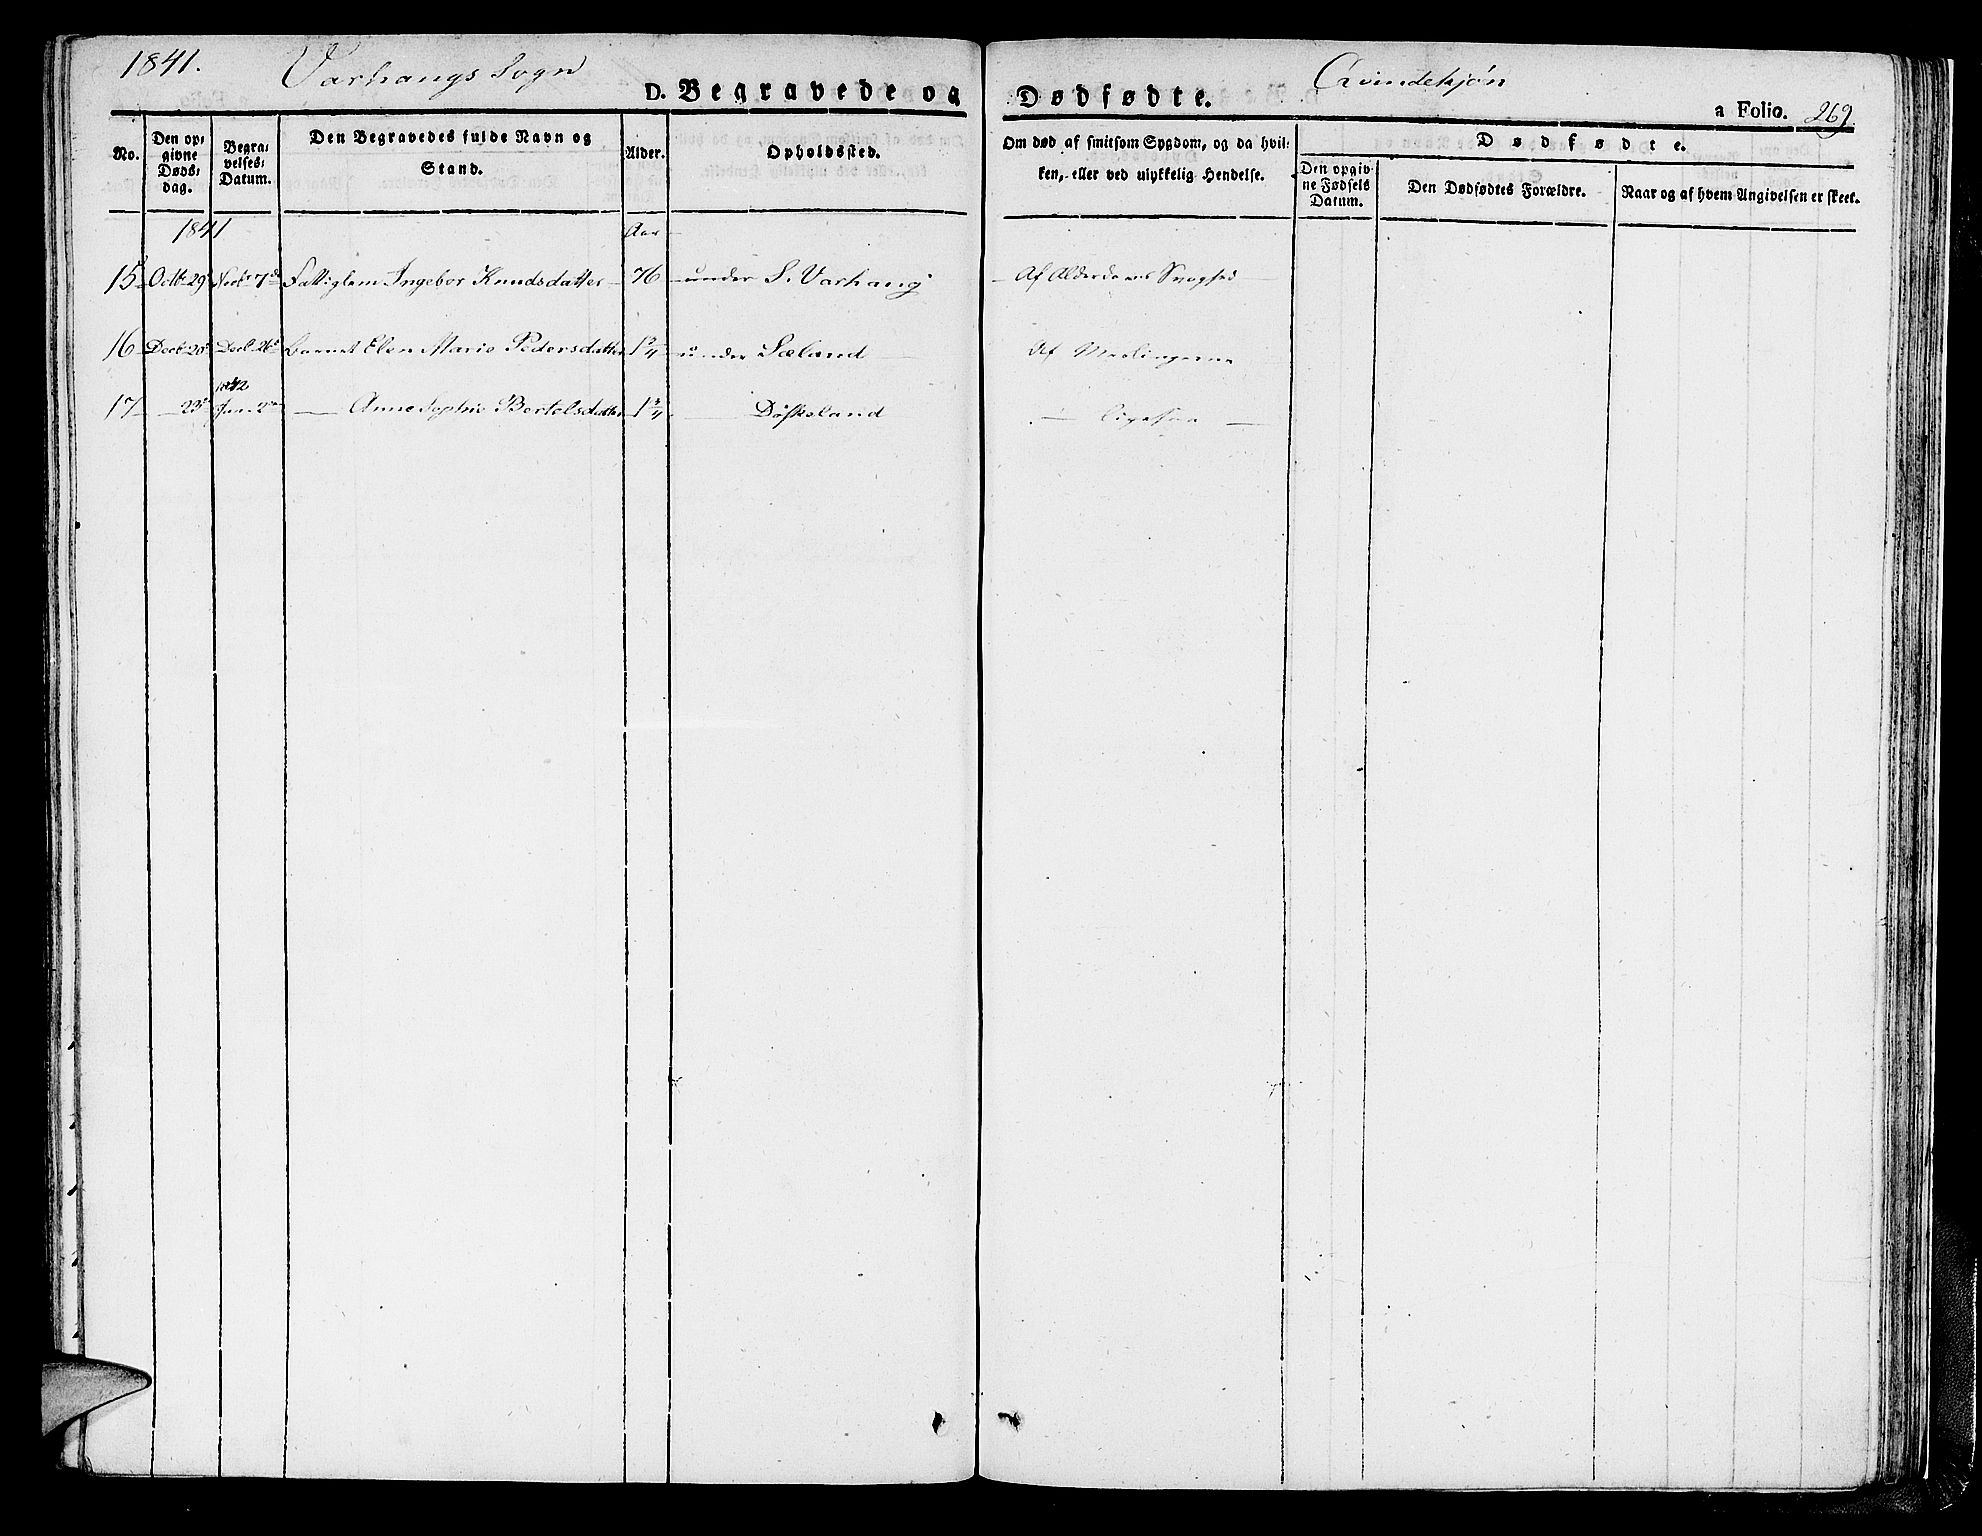 1841. Varhaugs Sogn Qvindekjøn
D. Begravede og Dødfødte. a Folio. 269.
No. Den opgivne Dødsdag. Begravelses-Datum. Den Begravedes fulde Navn og Stand. Alder. Opholdssted. Om død af smitsom Sygdom, og da hvilken, eller ved ulykkelig Hendelse. Dødfødte. Den opgivne Fødsels Datum. Den Dødfødtes Forældre. Naar og af hvem Angivelsen er skeet.
1841 Aar
15 Octb 29 Novb 7de Fattiglem Ingebor Knudsdatter 76 under S. Varhaug Af Alderdoms Svaghed
16 Decb 20 Decb 26 barnet Elen Marie Pedersdatter 1 under Sæland Af Meslingerne
1842
17 — 23 Jan. 2 — Anne Sophie Bertelsdatter 1 — Døsksland — ligesaa —